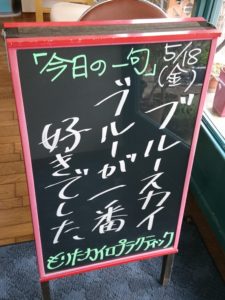 「今日の一句」
5/18
(金)
ブルースカイ
ブルーが一番
好きでした
もりたカイロプラクティック